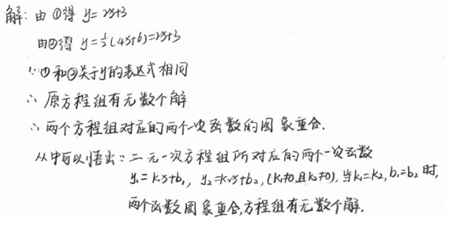 解: 由①得 y=2x+3
由②得 y=½(4x+6)=2x+3
∵①和②关于y的表达式相同
∴ 原方程组有无数个解
∴ 两个方程组对应的两个一次函数的图象重合.
从中可以悟出:二元一次方程组所对应的两个一次函数
y₁=k₁x+b₁, y₂=k₂x+b₂, (k₁≠0且k₂≠0), 当k₁=k₂, b₁=b₂时,
两个函数图象重合,方程组有无数个解.